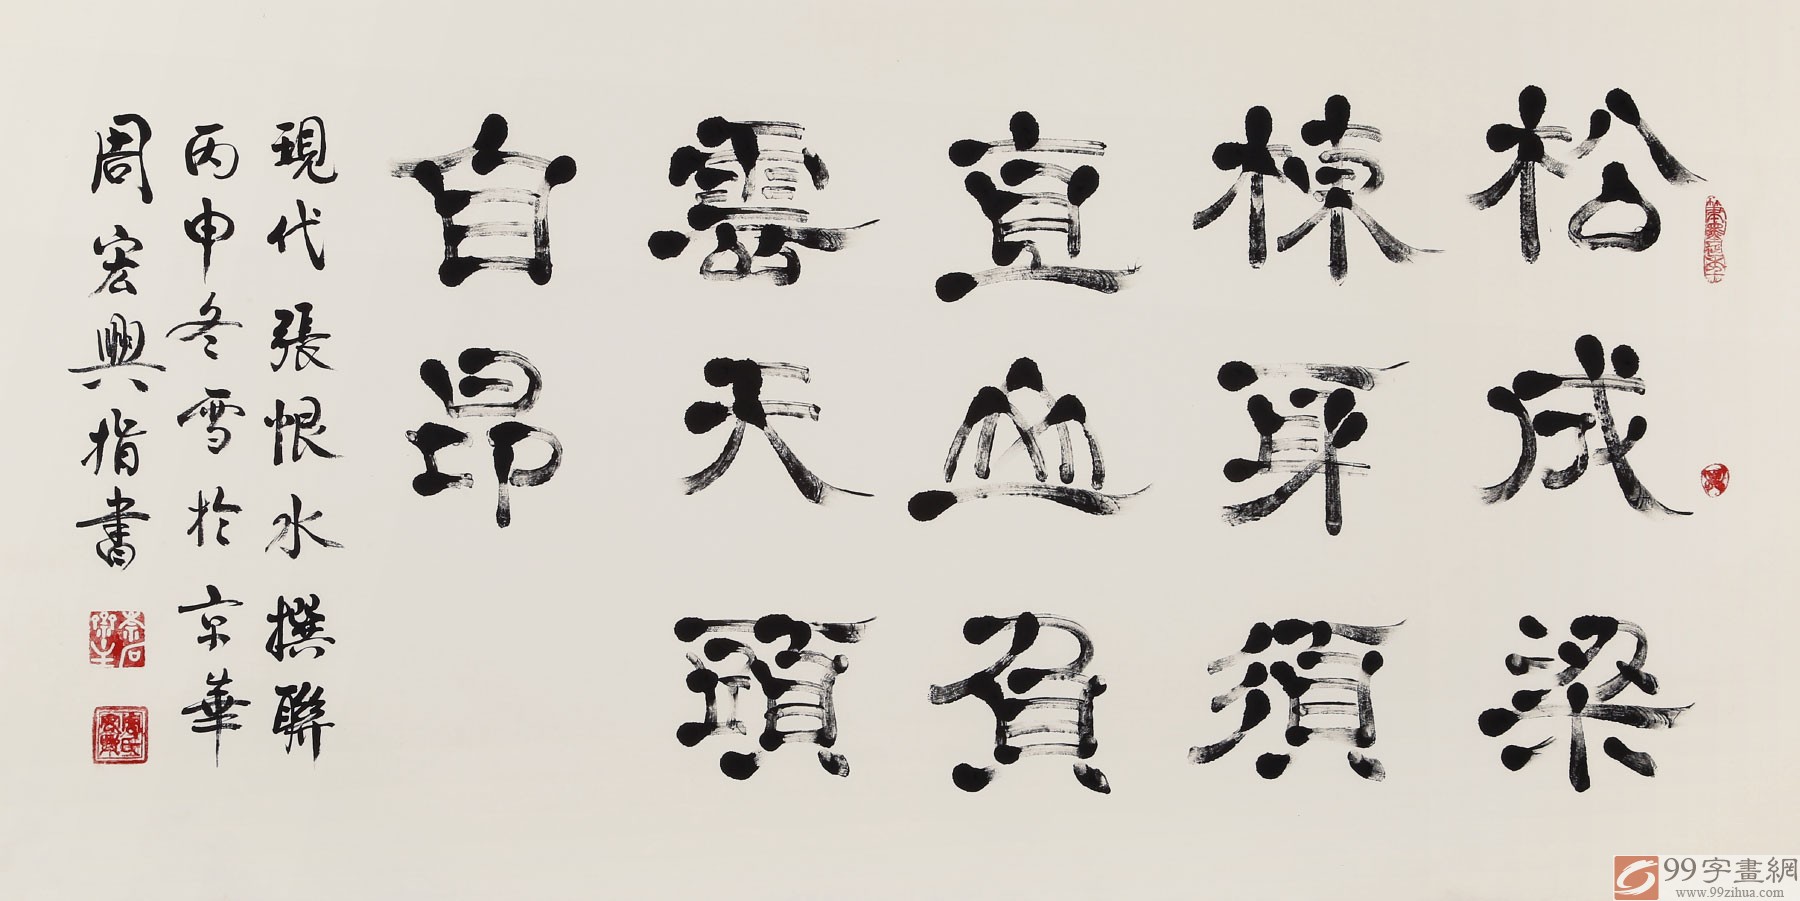 松成梁
棟身須
直山負
雲天頭
自昂
現代張恨水撰聯
丙申冬雪於京華
周宏興指書
99字畫網
www.99zihua.com